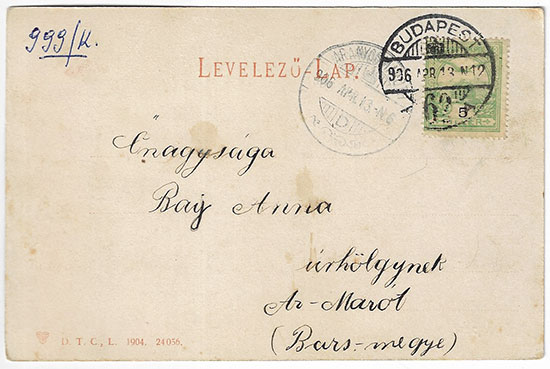 999/K.
LEVELEZŐ-LAP.
BUDAPEST
906 APR 13 N12
ARANYOS
906 APR 13 N6
5
Őnagysága
Baÿ Anna
úrhölgynek
Ar-Marót
(Bars-megye)
D. T. C., L. 1904. 24056.